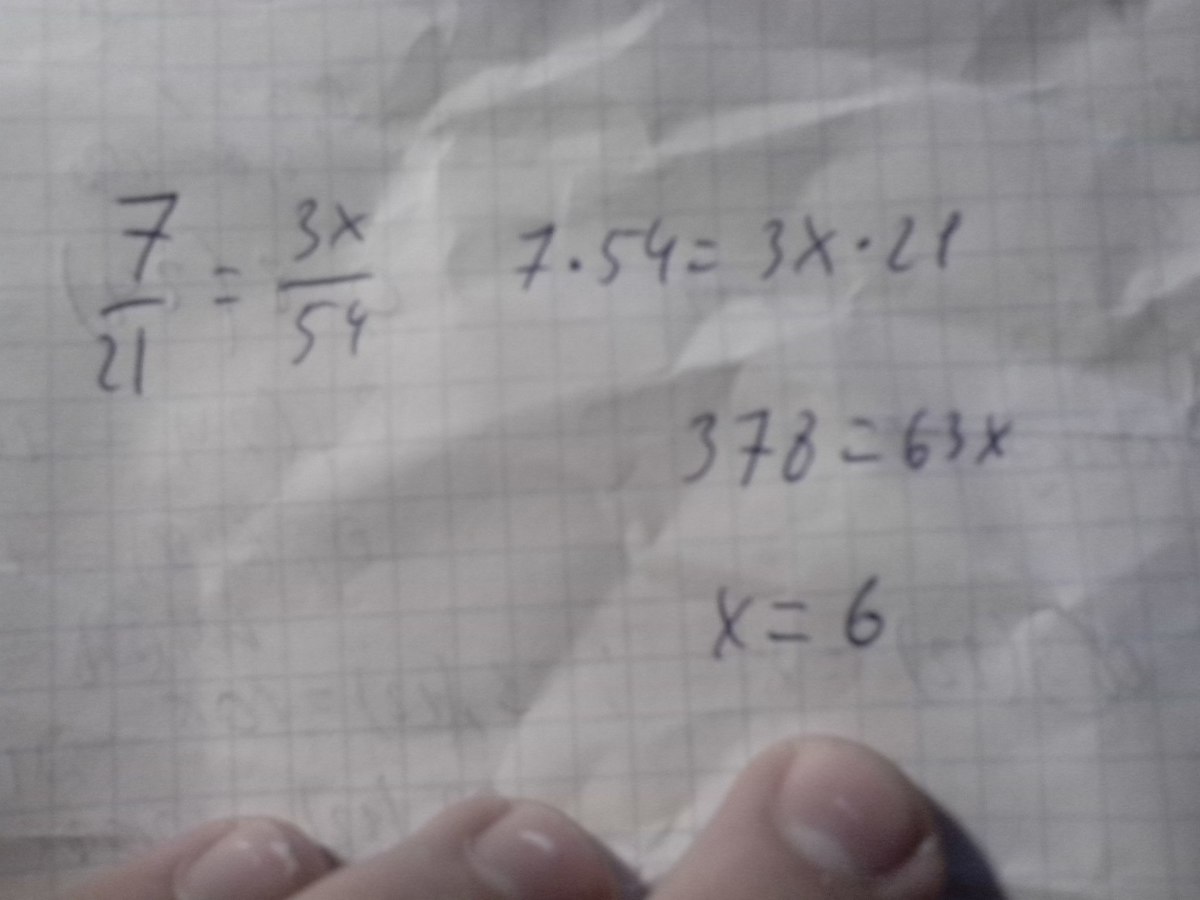 7/21 = 3x/54
7·54= 3x·21
378=63x
x=6